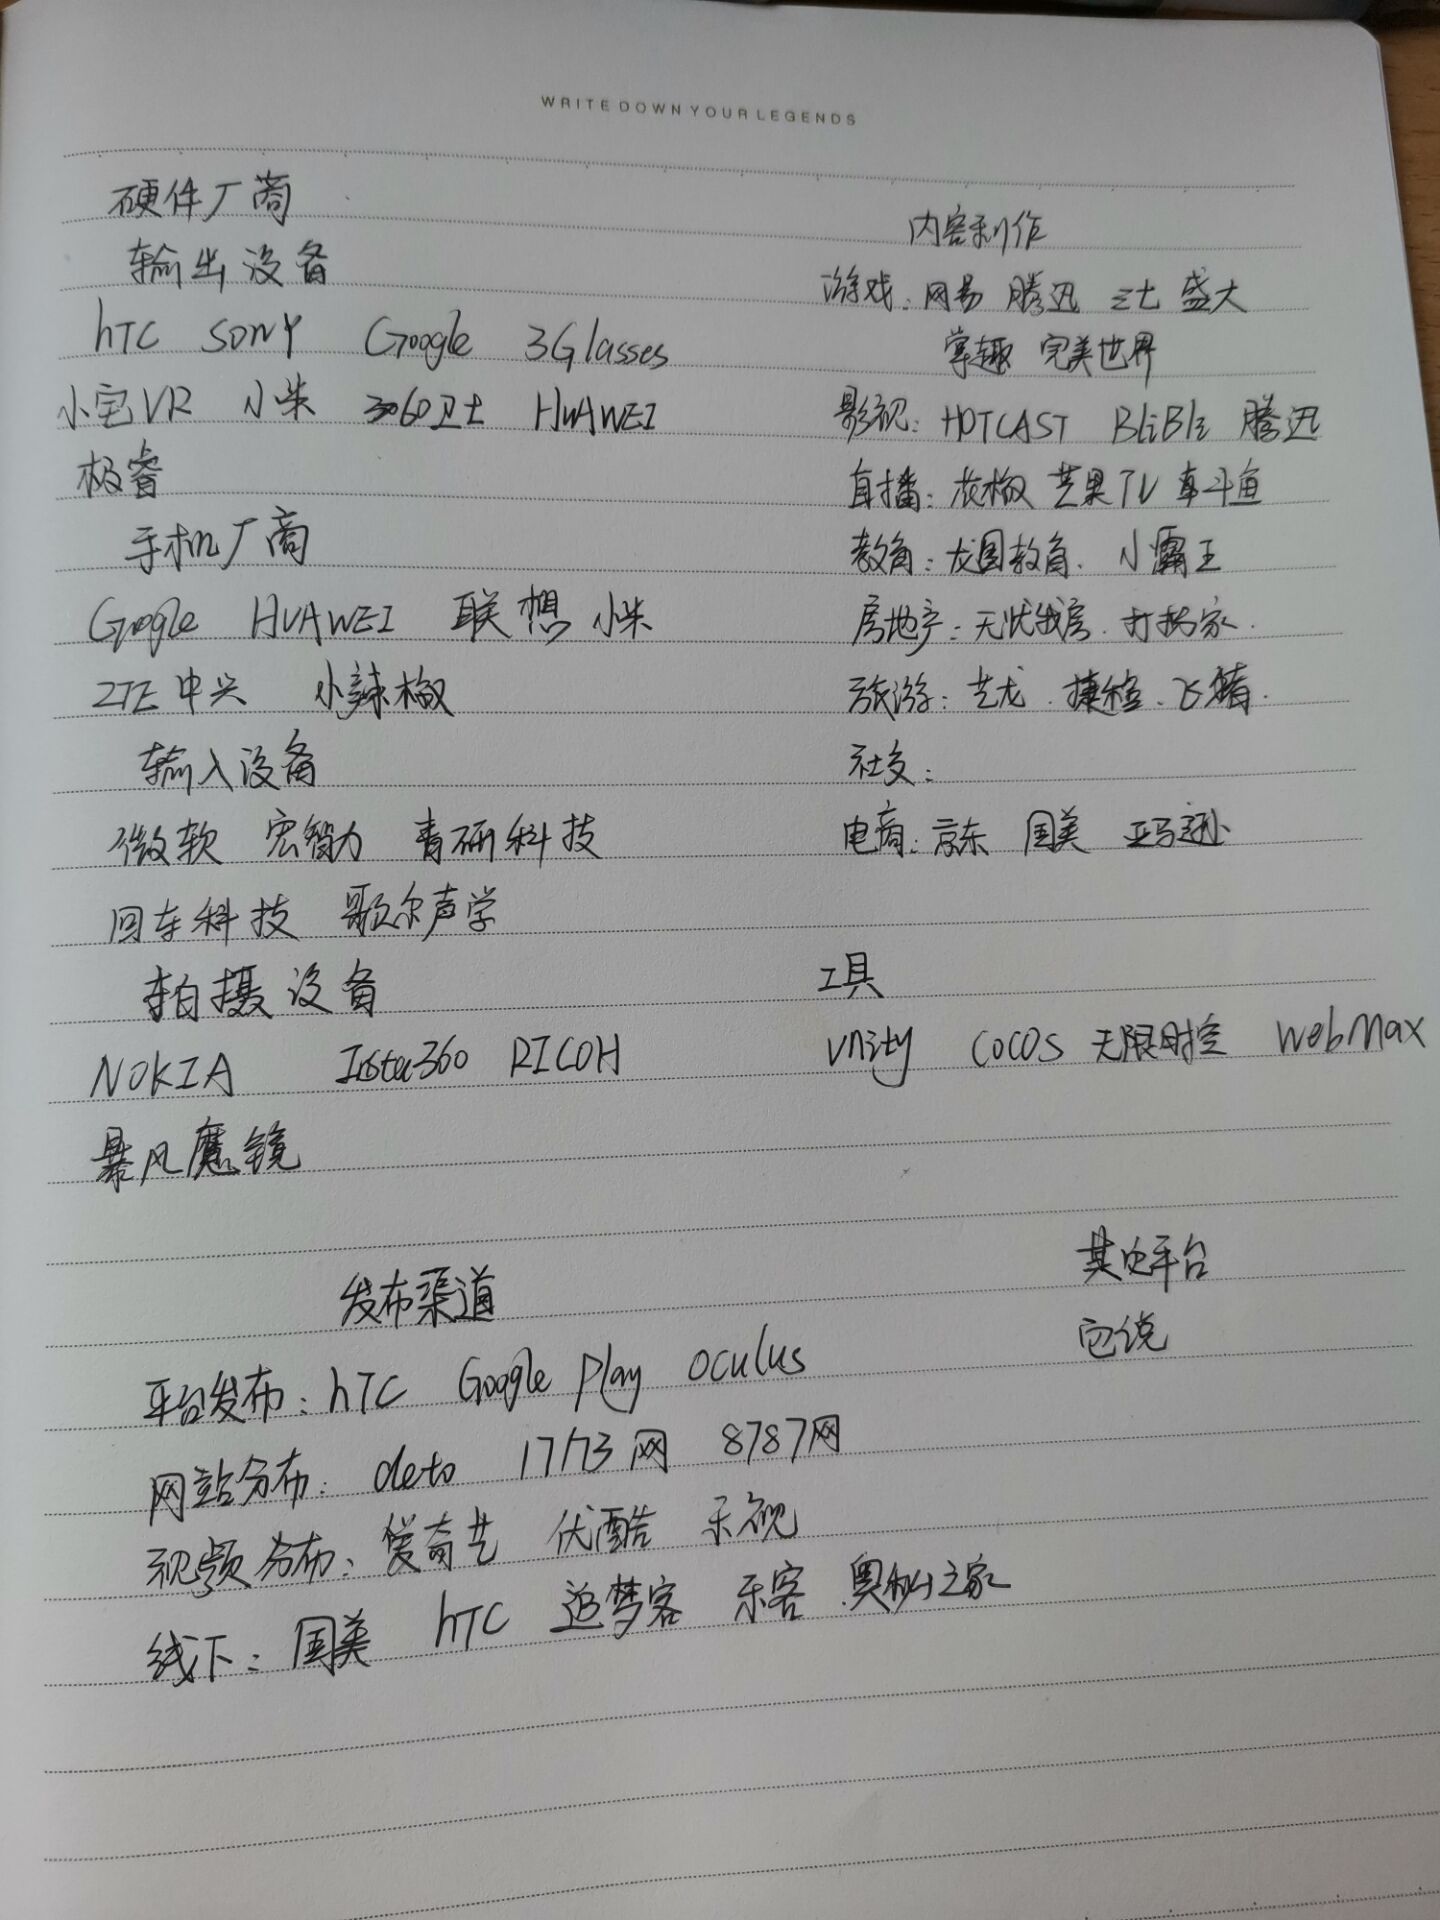 WRITE DOWN YOUR LEGENDS
硬件厂商
输出设备
hTC SONY Google 3Glasses
小宅VR 小米 3060卫士 HUAWEI
极睿
手机厂商
Google HUAWEI 联想 小米
ZTE中兴 小辣椒
输入设备
微软 宏智力 青研科技
回车科技 歌尔声学
拍摄设备
NOKIA Insta360 RICOH
暴风魔镜
内容制作
游戏：网易 腾迅 三七 盛大
掌趣 完美世界
影视：HOTCAST BliBli 腾迅
直播：花椒 芒果TV 斗鱼
教育：龙图教育. 小霸王
房地产：无忧我房. 打扮家.
旅游：艺龙. 携程. 飞猪.
社交：
电商：京东 国美 亚马逊
工具
Unity COCOS 无限时空 WebMax
发布渠道
平台发布：hTC Google Play oculus
网站分布： 17173网 8787网
视频分布：爱奇艺 优酷 乐视
线下：国美 hTC 追梦客 乐客 奥秘之家
其它平台